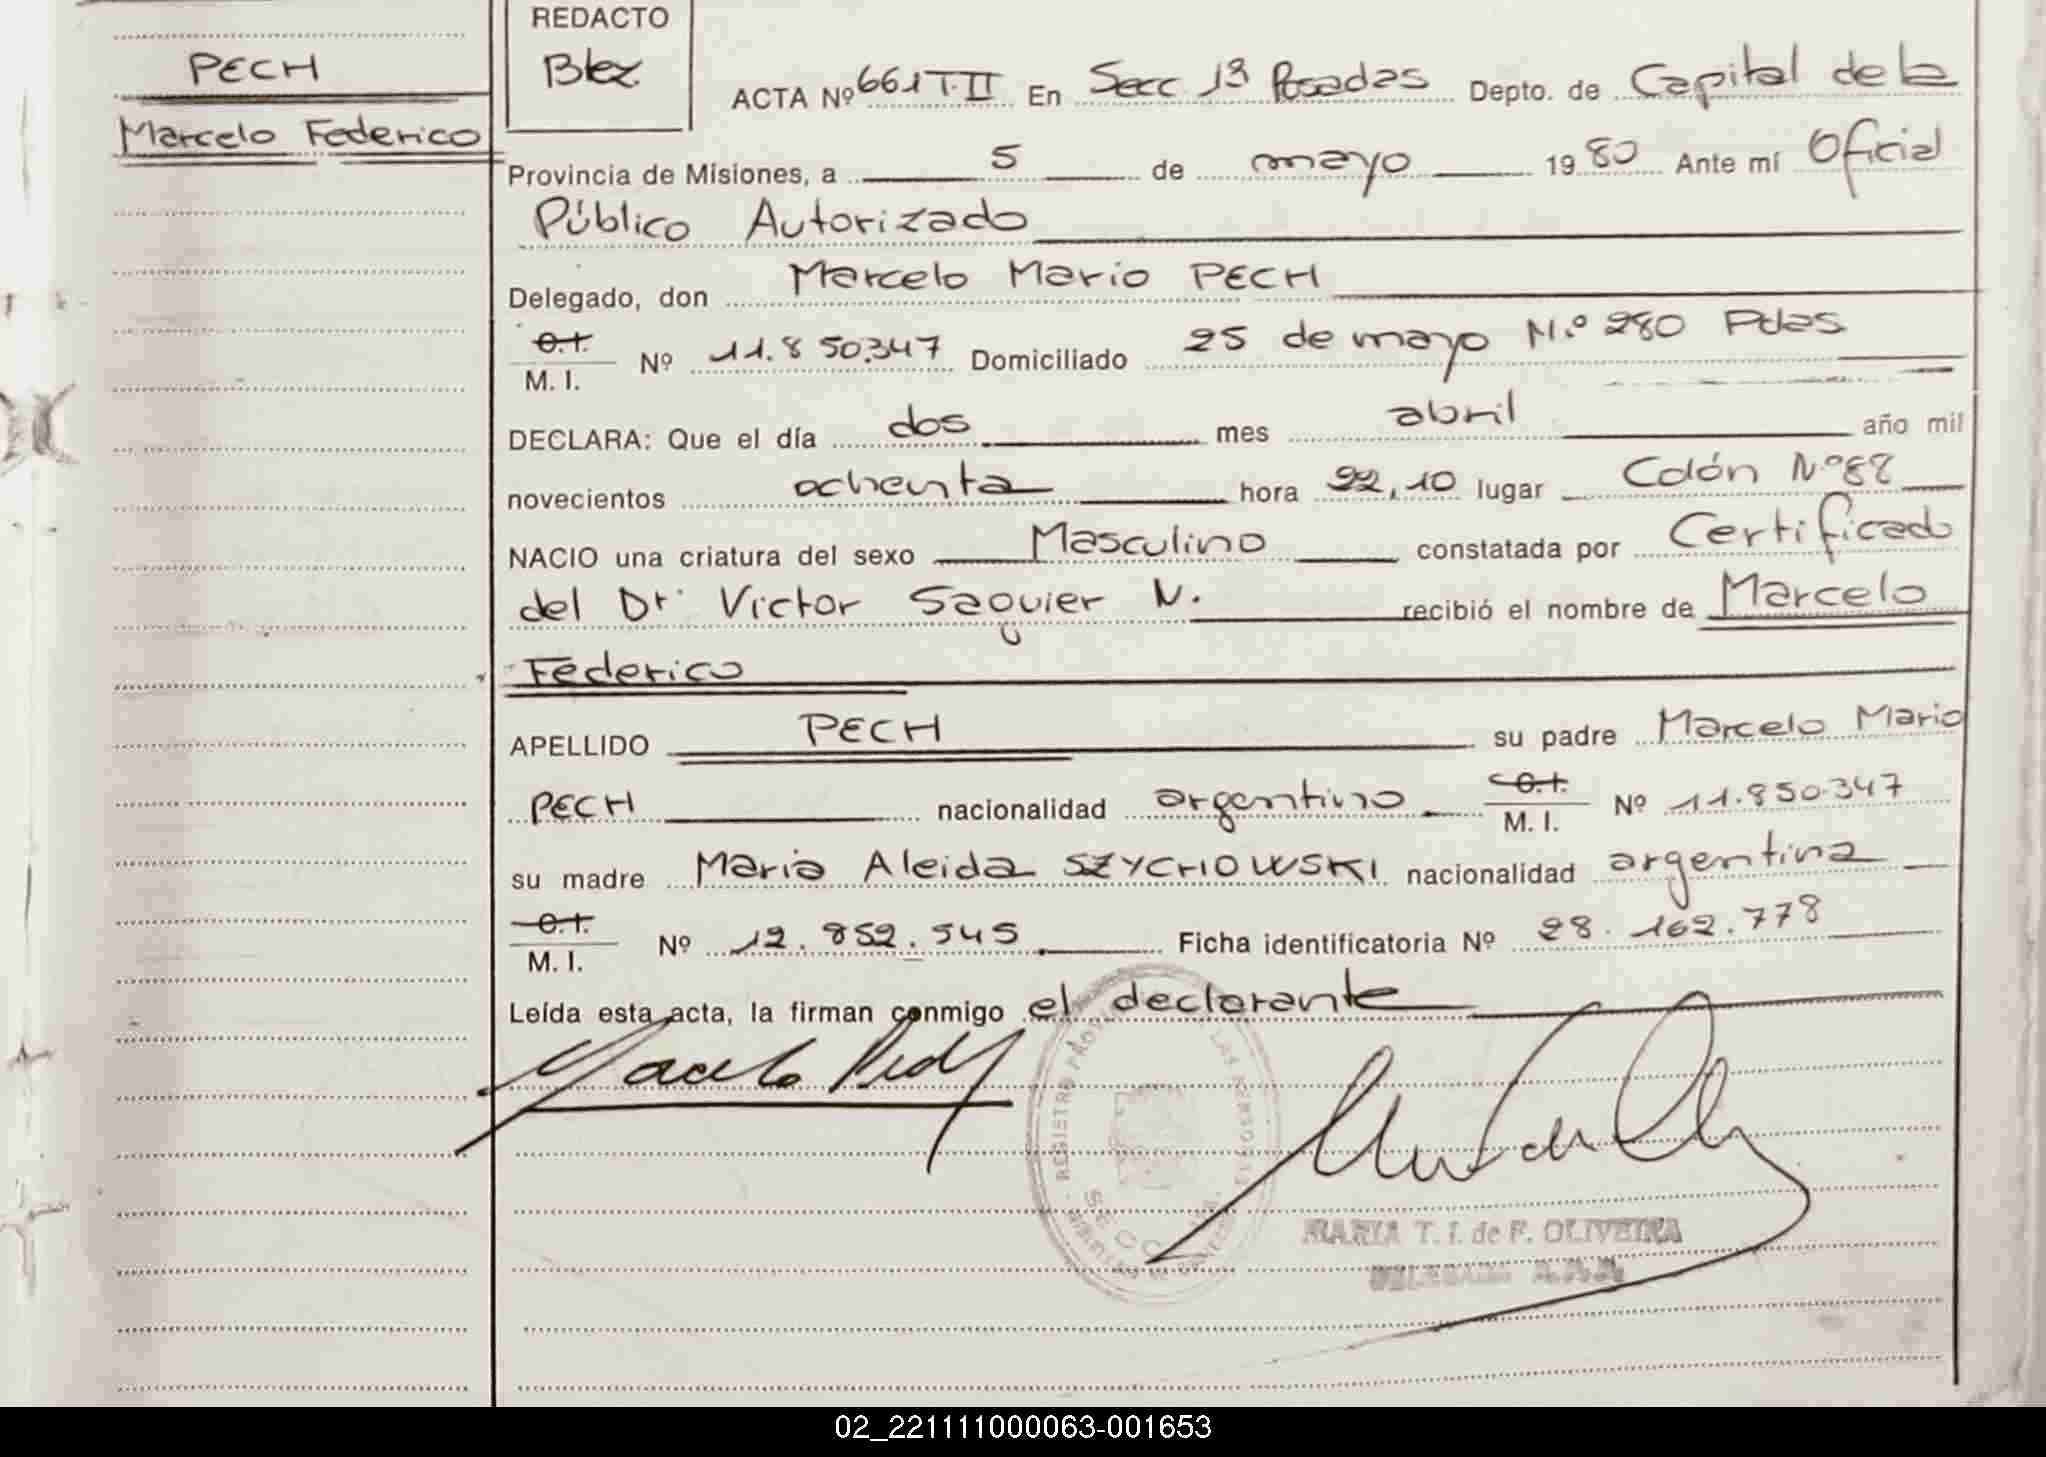 PECH
Marcelo Federico
REDACTO
Blez
ACTA Nº 661 T.II En Secc 1ª Posadas Depto. de Capital de la
Provincia de Misiones, a 5 de mayo 1980 Ante mí Oficial
Público Autorizado
Delegado, don Marcelo Mario PECH
C.I.
M. I. Nº 11.850.347 Domiciliado 25 de mayo N.º 280 Pdas
DECLARA: Que el día dos mes abril año mil
novecientos ochenta hora 22,10 lugar Colón Nº 88
NACIO una criatura del sexo Masculino constatada por Certificado
del Dr. Victor Saguier N. recibió el nombre de Marcelo
Federico
APELLIDO PECH su padre Marcelo Mario
PECH nacionalidad argentino C.I.
M. I. Nº 11.850.347
su madre Maria Aleida SZYCHOWSKI nacionalidad argentina
C.I.
M. I. Nº 12.852.545 Ficha identificatoria Nº 28.162.778
Leída esta acta, la firman conmigo el declarante
Marcelo Pech
REGISTRO PROV DE LAS PERSONAS
SECC
MARIA T. I. de F. OLIVEIRA
DELEGADA
02_221111000063-001653